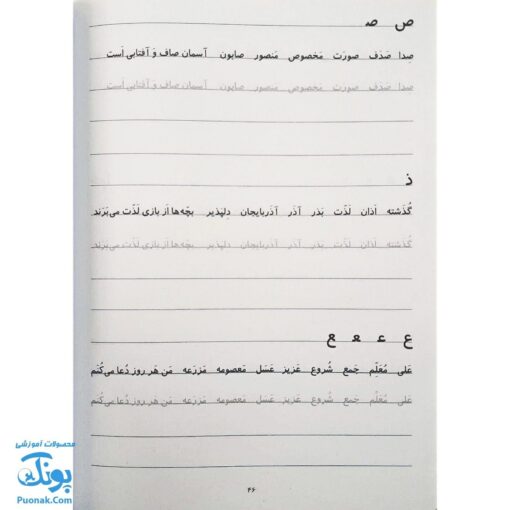 صـ ص
صِدا صَدَف صورَت مَخصوص مَنصور صابون آسمان صاف وَ آفتابی اَست
صِدا صَدَف صورَت مَخصوص مَنصور صابون آسمان صاف وَ آفتابی اَست
ذ
گُذَشته اَذان لَذَّت بَذر آذَر آذَربایجان دِلپَذیر بچّه‌ها اَز بازی لَذَّت می‌بَرَند
گُذَشته اَذان لَذَّت بَذر آذَر آذَربایجان دِلپَذیر بچّه‌ها اَز بازی لَذَّت می‌بَرَند
عـ ـعـ ـع ع
عَلی مُعَلِّم جَمع شُروع عَزیز عَسَل مَعصومه مَزرَعه مَن هَر روز دُعا می‌کُنَم
عَلی مُعَلِّم جَمع شُروع عَزیز عَسَل مَعصومه مَزرَعه مَن هَر روز دُعا می‌کُنَم
۴۶
محصولات آموزشی
پونک
Puonak.Com